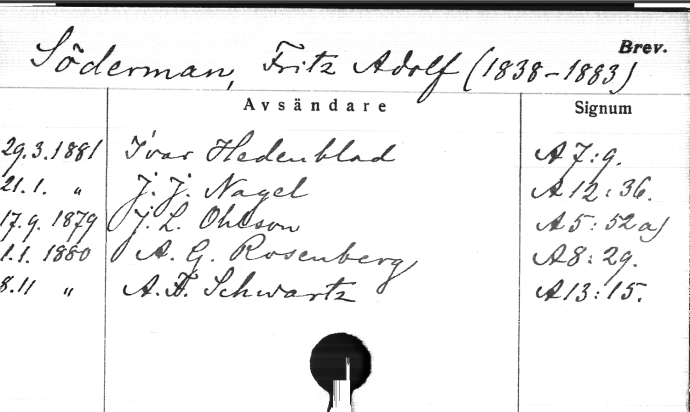 Brev.
Söderman, Fritz Adolf (1838-1883)
Avsändare Signum
29.3.1881 Ivar Hedenblad A7:9.
21.1. " J. J. Nagel A12:36.
17.9.1879 J. L. Ohlson A5:52a)
1.1.1880 A. G. Rosenberg A8:29.
8.11 " A. F. Schwartz A13:15.